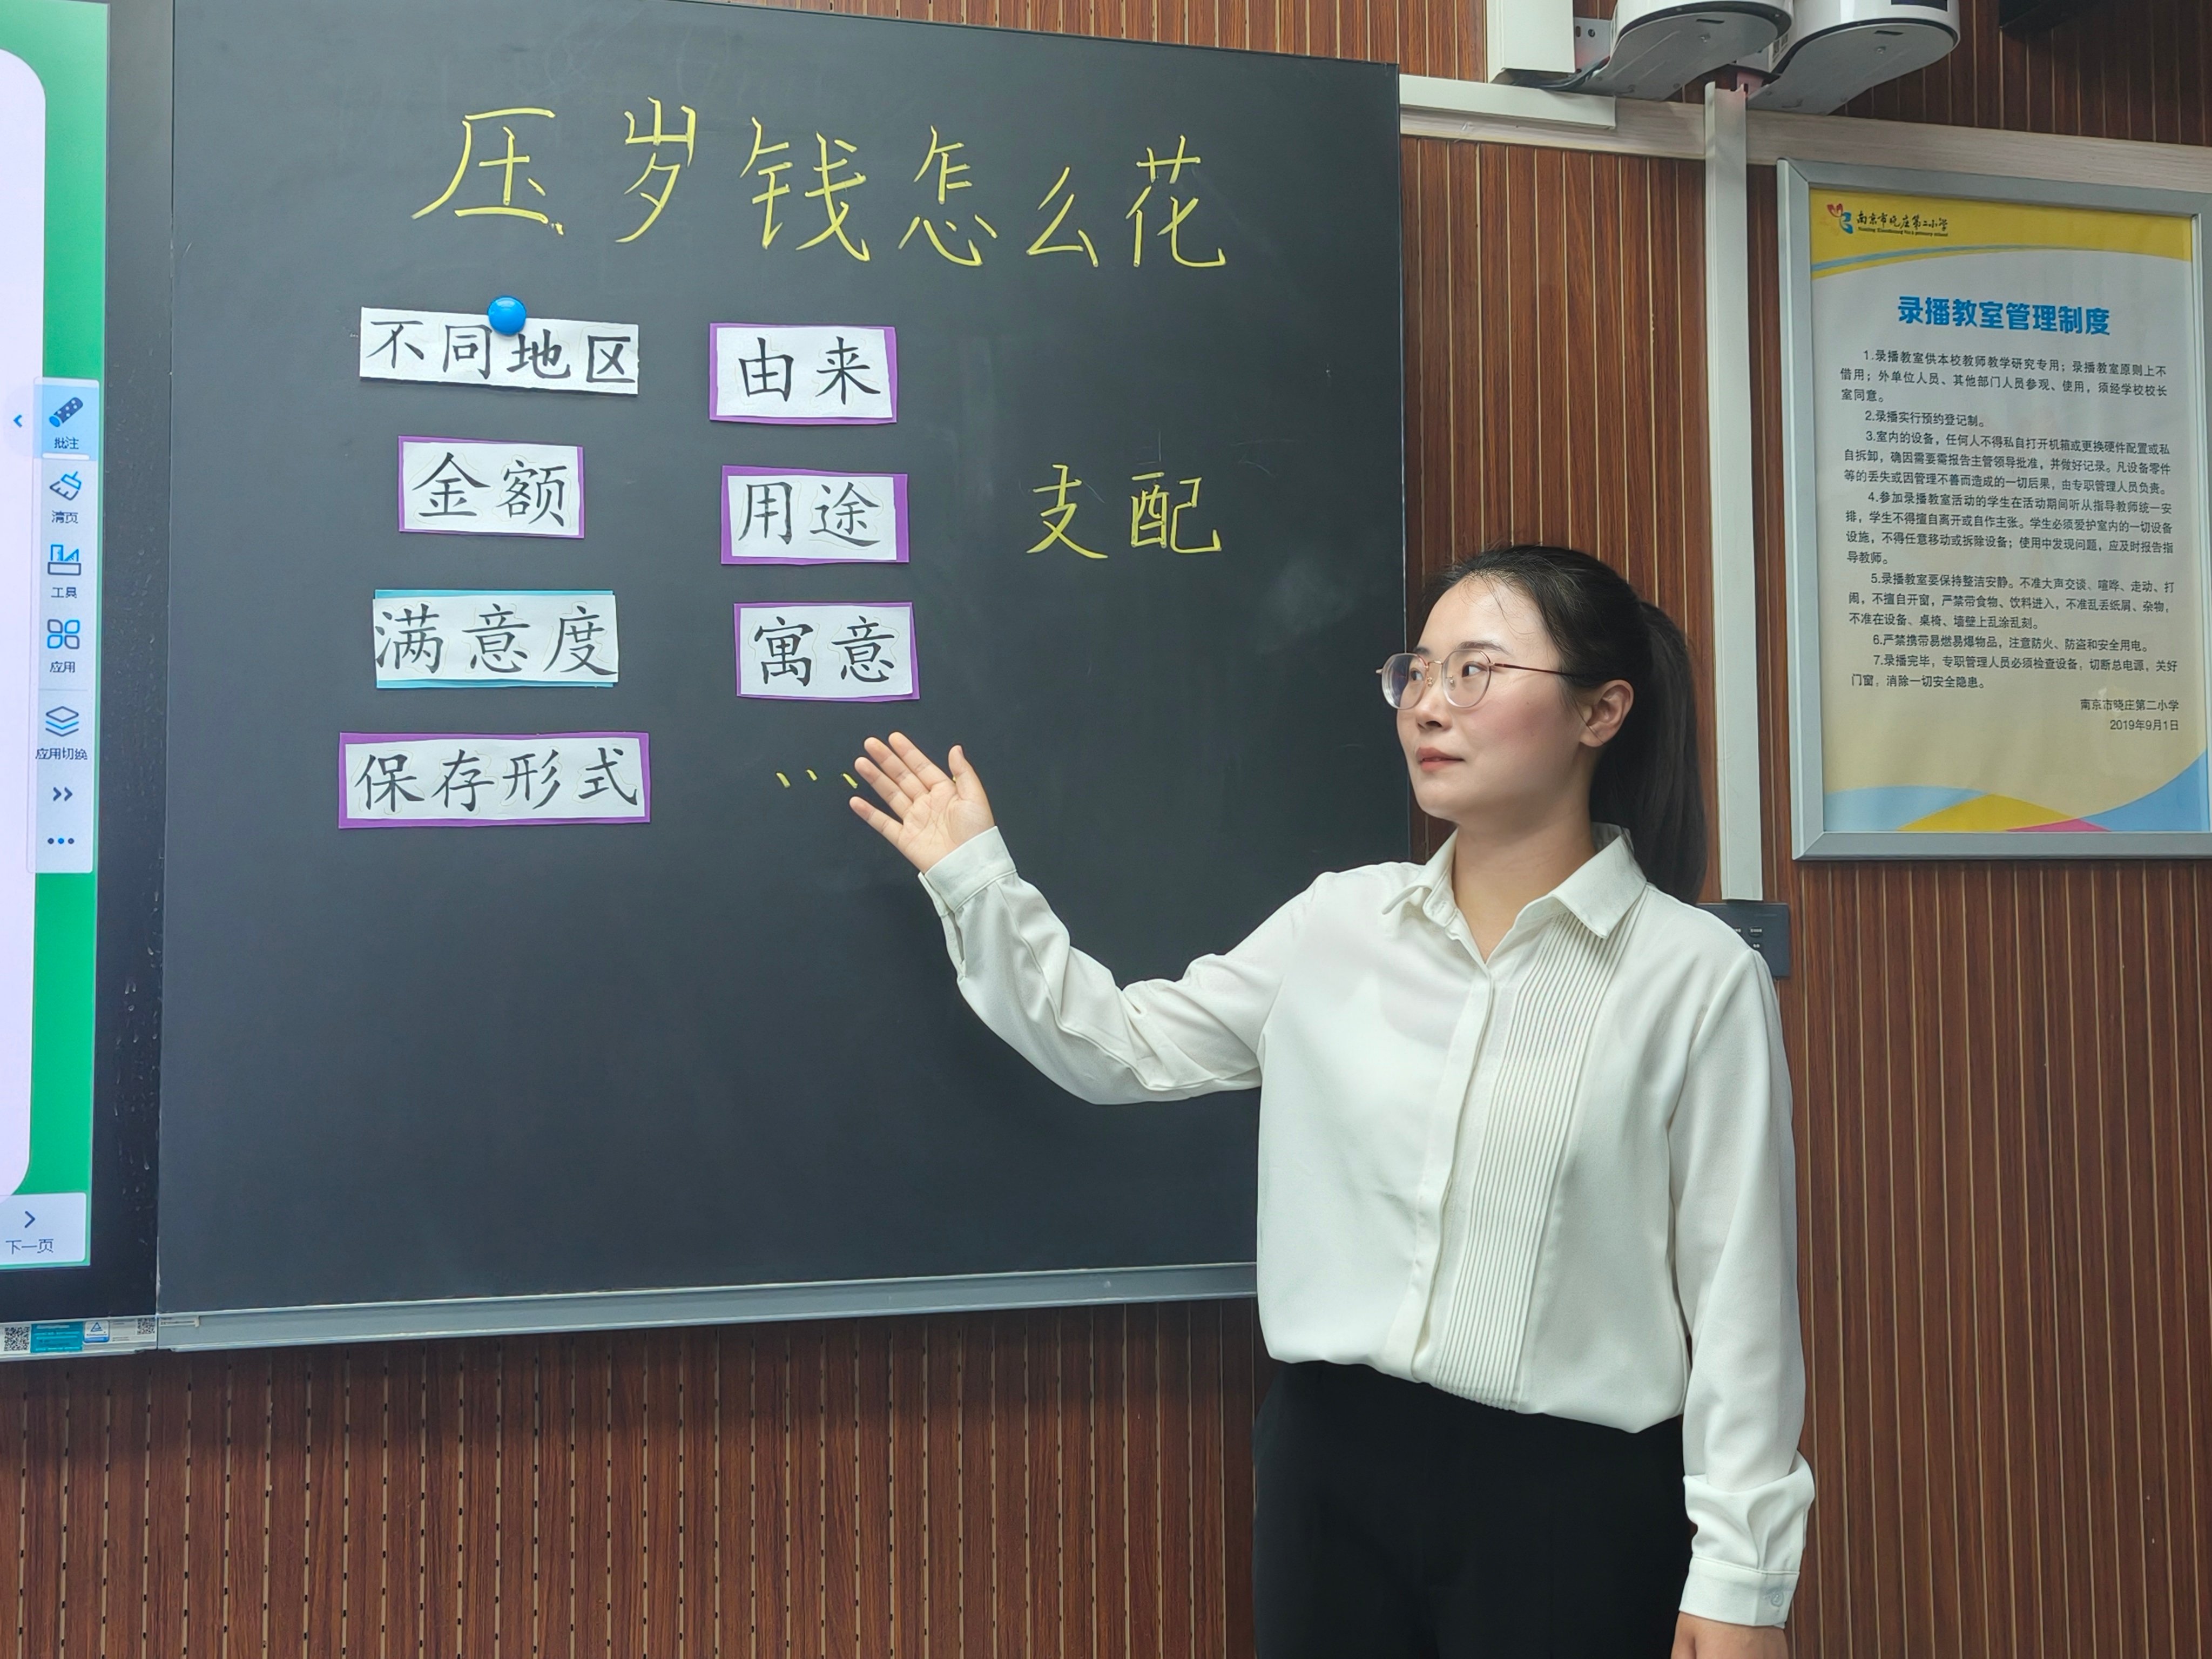 压岁钱怎么花
不同地区
由来
金额
用途
支配
满意度
寓意
保存形式
批注
清页
工具
应用
应用切换
下一页
南京市晓庄第二小学
录播教室管理制度
1.录播教室供本校教师教学研究专用；录播教室原则上不
借用；外单位人员、其他部门人员参观、使用，须经学校校长
室同意。
2.录播实行预约登记制。
3.室内的设备，任何人不得私自打开机箱或更换硬件配置或私
自拆卸，确因需要需报告主管领导批准，并做好记录。凡设备零件
等的丢失或因管理不善而造成的一切后果，由专职管理人员负责。
4.参加录播教室活动的学生在活动期间听从指导教师统一安
排，学生不得擅自离开或自作主张。学生必须爱护室内的一切设备
设施，不得任意移动或拆除设备；使用中发现问题，应及时报告指
导教师。
5.录播教室要保持整洁安静。不准大声交谈、喧哗、走动、打
闹，不擅自开窗，严禁带食物、饮料进入，不准乱丢纸屑、杂物，
不准在设备、桌椅、墙壁上乱涂乱刻。
6.严禁携带易燃易爆物品，注意防火、防盗和安全用电。
7.录播完毕，专职管理人员必须检查设备，切断总电源，关好
门窗，消除一切安全隐患。
南京市晓庄第二小学
2019年9月1日